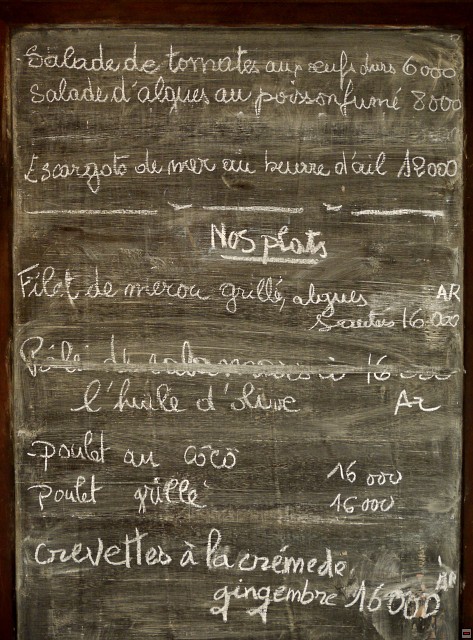 Salade de tomates aux œufs durs 6000
Salade d'algues au poisson fumé 8000
Escargots de mer au beurre d'ail 12000
Nos plats
Filet de mérou grillé, algues AR
Sautées 16.000
16 000
l'huile d'olive Ar
-poulet au côcô 16 000
Poulet grillé 16000
crevettes à la crème de Ar
gingembre 16000